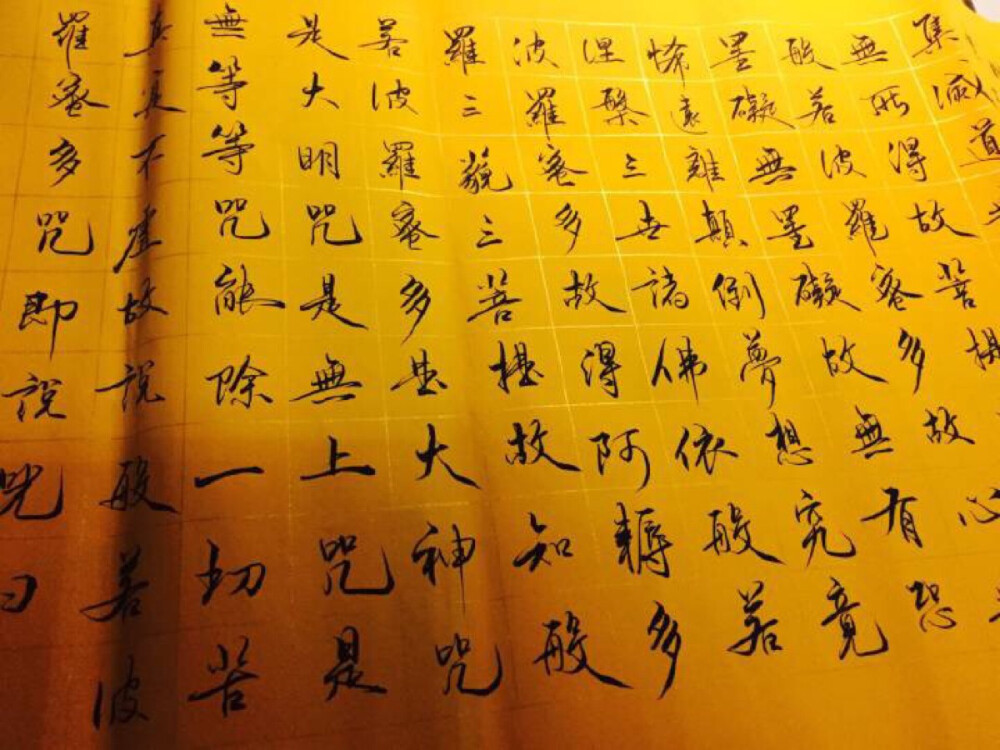 集滅道
無所得故菩提
般若波羅蜜多故心
罣礙無罣礙故無有恐
怖遠離顛倒夢想究竟
涅槃三世諸佛依般若
波羅蜜多故得阿耨多
羅三藐三菩提故知般
若波羅蜜多是大神咒
是大明咒是無上咒是
無等等咒能除一切苦
真實不虛故說般若波
羅蜜多咒即說咒曰